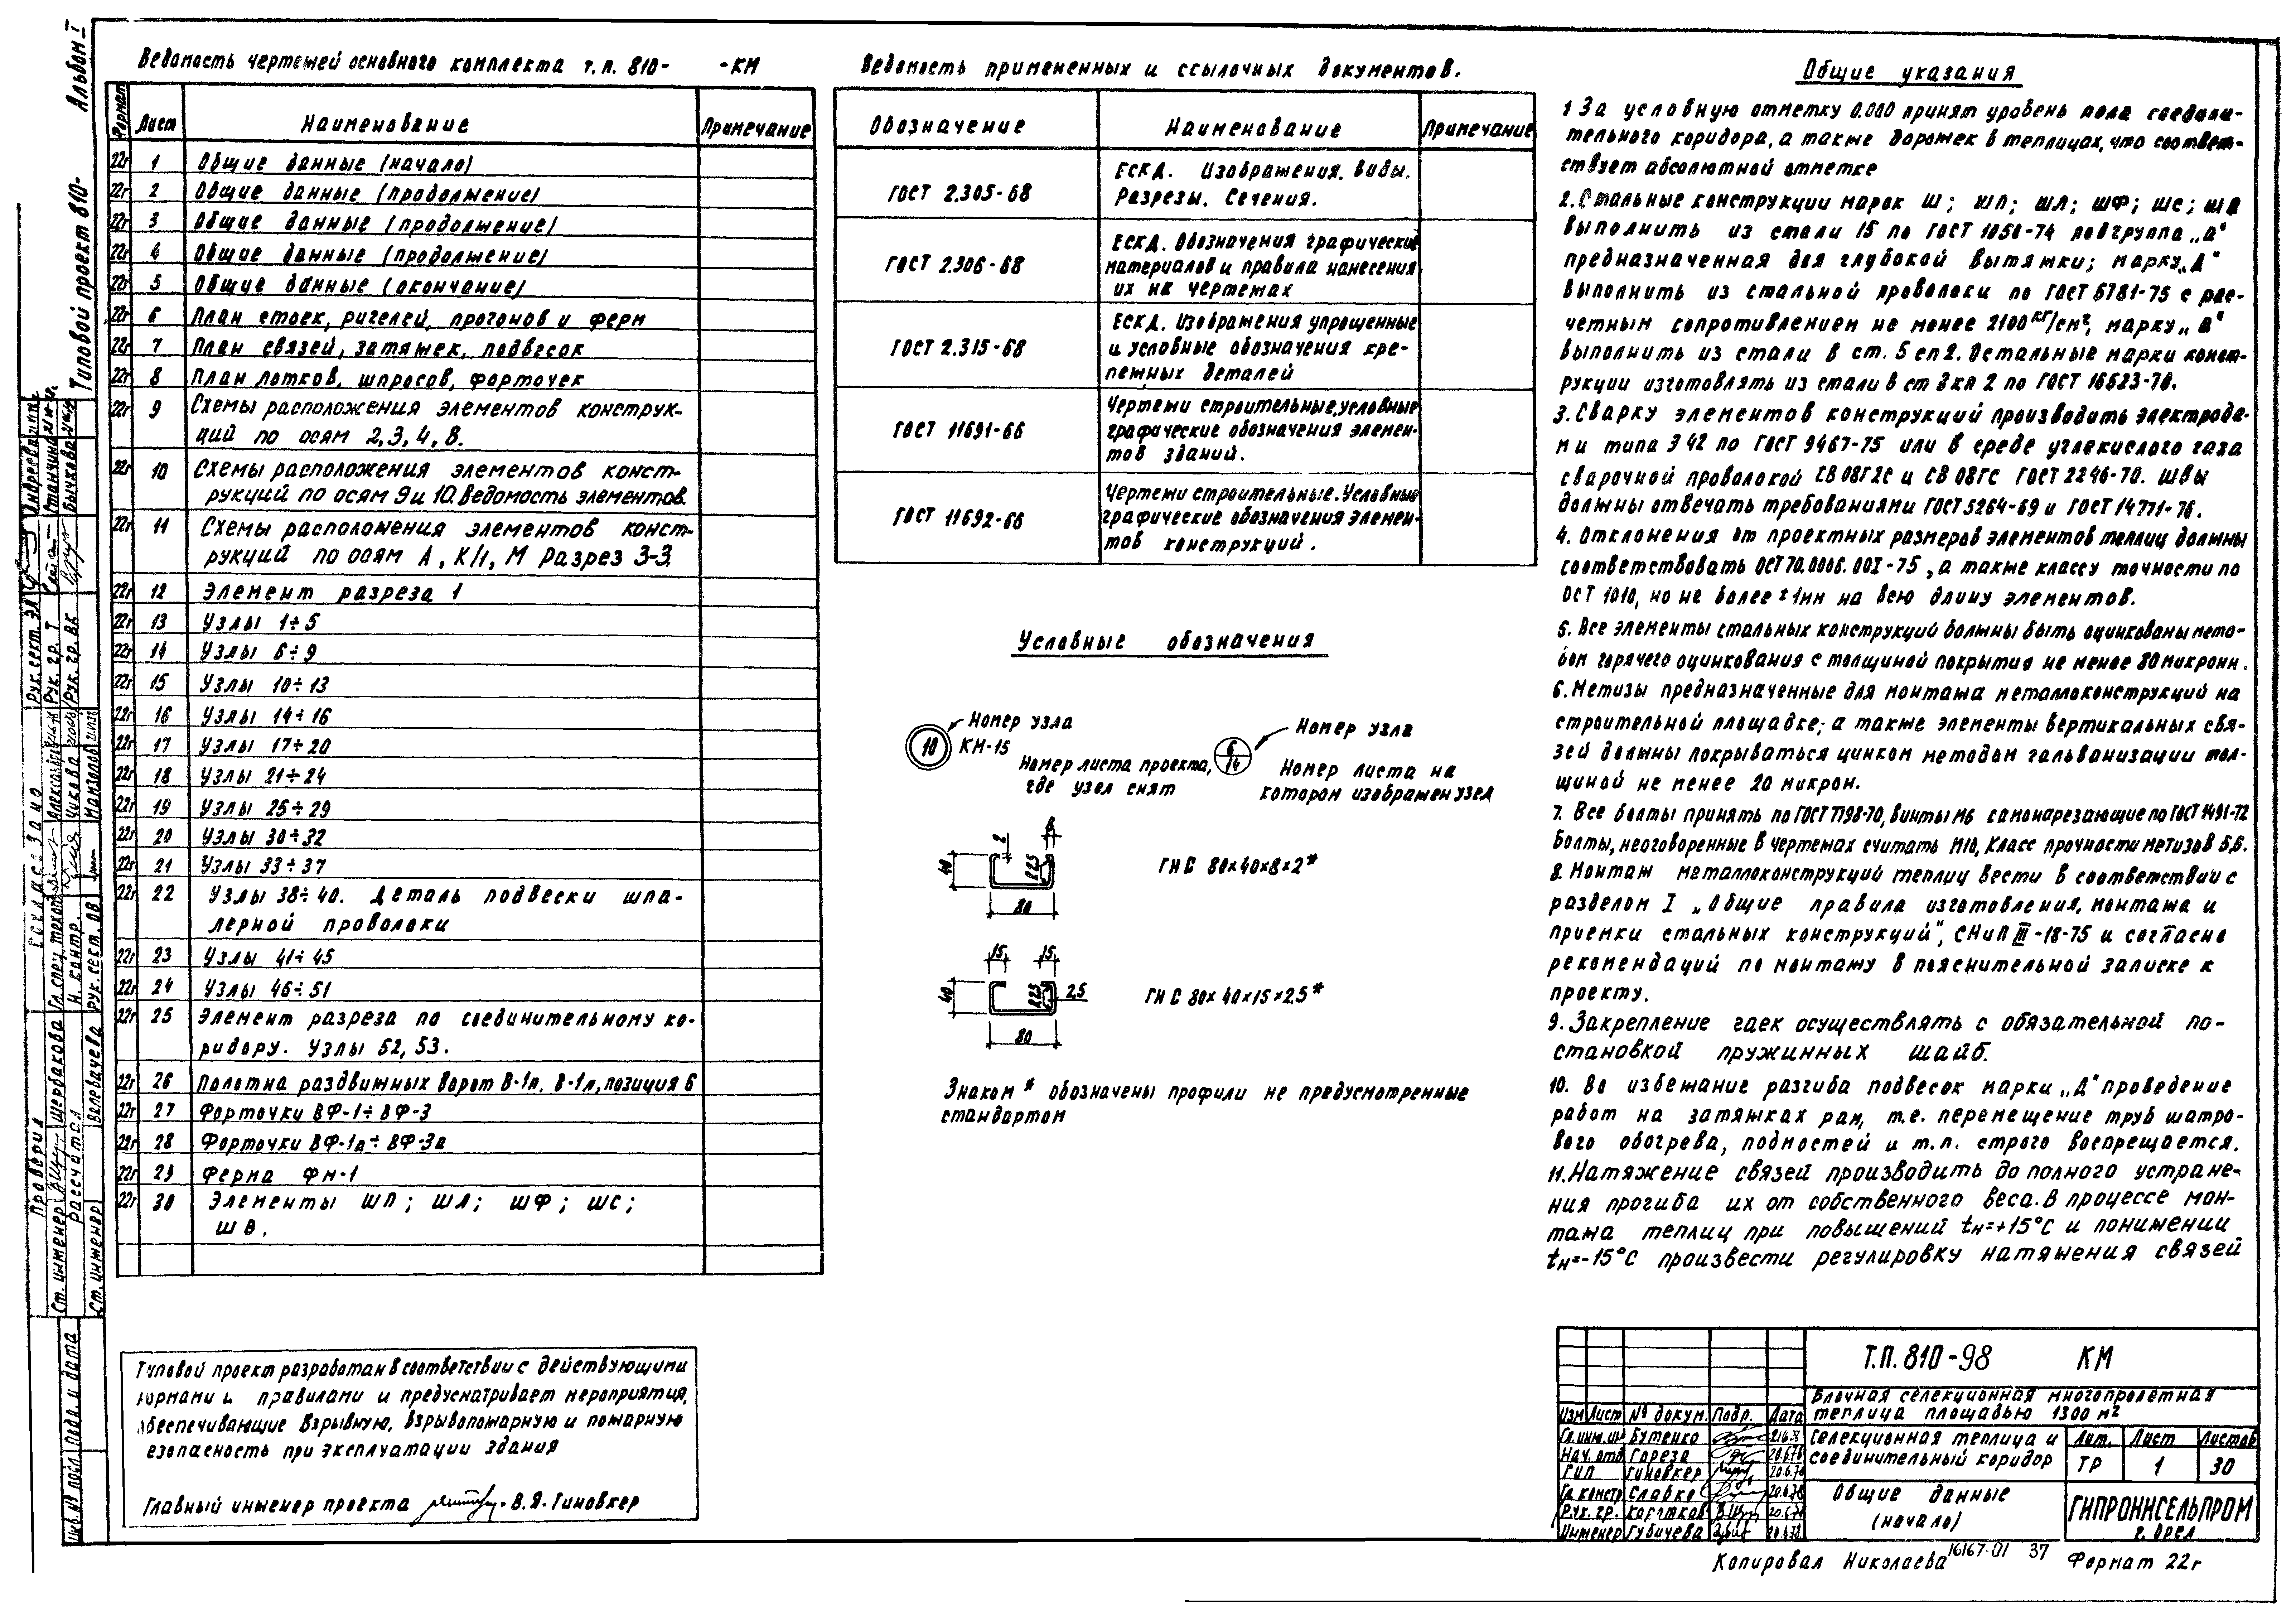 Альбом I
Типовой проект 810-
Ведомость чертежей основного комплекта т.п. 810- -КМ
Формат Лист Наименование Примечание
22г 1 Общие данные (начало)
22г 2 Общие данные (продолжение)
22г 3 Общие данные (продолжение)
22г 4 Общие данные (продолжение)
22г 5 Общие данные (окончание)
22г 6 План стоек, ригелей, прогонов и ферм
22г 7 План связей, затяжек, подвесок
22г 8 План лотков, шпросов, форточек
22г 9 Схемы расположения элементов конструк-
ций по осям 2, 3, 4, 8.
22г 10 Схемы расположения элементов конст-
рукций по осям 9 и 10. Ведомость элементов.
22г 11 Схемы расположения элементов конст-
рукций по осям А, К/1, М Разрез 3-3.
22г 12 Элемент разреза 1
22г 13 Узлы 1÷5
22г 14 Узлы 6÷9
22г 15 Узлы 10÷13
22г 16 Узлы 14÷16
22г 17 Узлы 17÷20
22г 18 Узлы 21÷24
22г 19 Узлы 25÷29
22г 20 Узлы 30÷32
22г 21 Узлы 33÷37
22г 22 Узлы 38÷40. Деталь подвески шпа-
лерной проволоки
22г 23 Узлы 41÷45
22г 24 Узлы 46÷51
22г 25 Элемент разреза по соединительному ко-
ридору. Узлы 52, 53.
22г 26 Полотна раздвижных ворот В-1п, В-1л, позиция 6
22г 27 Форточки ВФ-1÷ВФ-3
22г 28 Форточки ВФ-1а÷ВФ-3а
22г 29 Ферма ФМ-1
22г 30 Элементы ШП; ШЛ; ШФ; ШС;
ШВ.
Ведомость примененных и ссылочных документов.
Обозначение Наименование Примечание
ГОСТ 2.305-68 ЕСКД. Изображения, виды.
Разрезы. Сечения.
ГОСТ 2.306-68 ЕСКД. Обозначения графические
материалов и правила нанесения
их на чертежах
ГОСТ 2.315-68 ЕСКД. Изображения упрощенные
и условные обозначения кре-
пежных деталей
ГОСТ 11691-66 Чертежи строительные, условные
графические обозначения элемен-
тов зданий.
ГОСТ 11692-66 Чертежи строительные. Условные
графические обозначения элемен-
тов конструкций.
Условные обозначения
10 Номер узла
КМ-15
Номер листа проекта,
где узел снят
6 Номер узла
14
Номер листа на
котором изображен узел
40 2 8 R2.5 80
ГН С 80×40×8×2*
15 15 40 R2.5 2,5 80
ГН С 80×40×15×2.5*
Знаком * обозначены профили не предусмотренные
стандартом
Общие указания
1 За условную отметку 0.000 принят уровень пола соедини-
тельного коридора, а также дорожек в теплицах, что соответ-
ствует абсолютной отметке
2. Стальные конструкции марок Ш; ШП; ШЛ; ШФ; ШС; ШВ
выполнить из стали 15 по ГОСТ 1050-74 подгруппа „а"
предназначенная для глубокой вытяжки; марку „Д"
выполнить из стальной проволоки по ГОСТ 6781-75 с рас-
четным сопротивлением не менее 2100 кг/см², марку „а"
выполнить из стали В ст. 5 сп2. Остальные марки конст-
рукции изготовлять из стали В ст 3 кп 2 по ГОСТ 16523-70.
3. Сварку элементов конструкций производить электрода-
ми типа Э 42 по ГОСТ 9467-75 или в среде углекислого газа
сварочной проволокой СВ 08Г2С и СВ 08ГС ГОСТ 2246-70. Швы
должны отвечать требованиями ГОСТ 5264-69 и ГОСТ 14771-76.
4. Отклонения от проектных размеров элементов теплиц должны
соответствовать ОСТ 70.0006.001-75, а также классу точности по
ОСТ 1010, но не более ±1мм на всю длину элементов.
5. Все элементы стальных конструкций должны быть оцинкованы мето-
дом горячего оцинкования с толщиной покрытия не менее 80 микронн.
6. Метизы предназначенные для монтажа металлоконструкций на
строительной площадке, а также элементы вертикальных свя-
зей должны покрываться цинком методом гальванизации тол-
щиной не менее 20 микрон.
7. Все болты принять по ГОСТ 7798-70, винты М6 самонарезающие по ГОСТ 1491-72
Болты, неоговоренные в чертежах считать М10, Класс прочности метизов 5,6.
8. Монтаж металлоконструкций теплиц вести в соответствии с
разделом I „Общие правила изготовления, монтажа и
приемки стальных конструкций", СНиП III-18-75 и согласно
рекомендаций по монтажу в пояснительной записке к
проекту.
9. Закрепление гаек осуществлять с обязательной по-
становкой пружинных шайб.
10. Во избежание разгиба подвесок марки „Д" проведение
работ на затяжках рам, т.е. перемещение труб шатро-
вого обогрева, подмостей и т.п. строго воспрещается.
11. Натяжение связей производить до полного устране-
ния прогиба их от собственного веса. В процессе мон-
тажа теплиц при повышений tн=+15°С и понижении
tн=-15°С произвести регулировку натяжения связей
Типовой проект разработан в соответствии с действующими
нормами и правилами и предусматривает мероприятия,
обеспечивающие взрывную, взрывопожарную и пожарную
езопасность при эксплуатации здания
Главный инженер проекта В.Я. Гиновкер
Т.П. 810-98 КМ
Блочная селекционная многопролетная
теплица площадью 1300 м²
Изм Лист № докум. Подп. Дата
Гл.инж.ин Бутенко 21.6.78
Нач. отд Гореза 20.6.78
ГИП Гиновкер 20.6.78
Гл. констр Славко 20.6.78
Рук. гр. Коротков 20.6.78
Инженер Губичева 20.6.78
Селекционная теплица и
соединительный коридор
Лит. Лист Листов
ТР 1 30
Общие данные
(начало)
ГИПРОНИСЕЛЬПРОМ
г. Орел
Копировал Николаева 16167-01 37 Формат 22г
Рук. сект. ЭЛ Андреева
Рук. гр. Т Станчина
Рук. гр. ВК Бычкова
Согласовано
Гл. спец. технол
Н. контр. Чикова
Рук. сект. ОВ
Проверил
Ст. инженер Щербакова
Рассчитал
Ст. инженер Валевачева
Инв. № подл. Подп. и дата